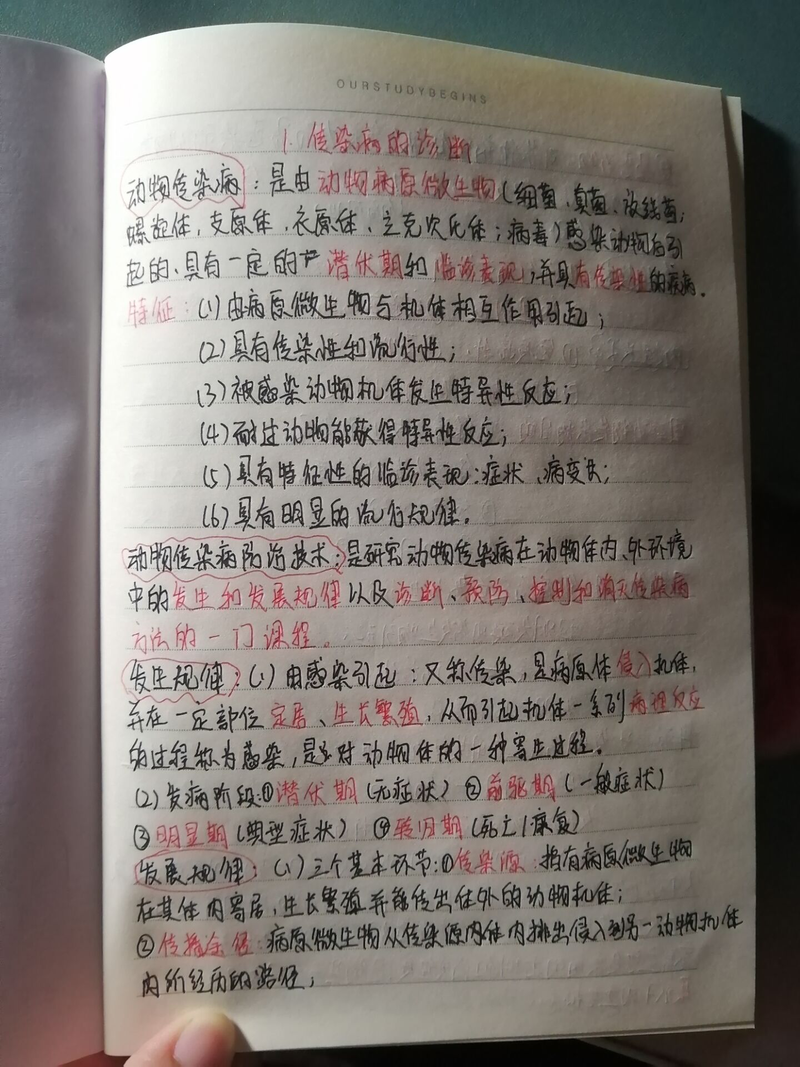 OURSTUDYBEGINS
1. 传染病的诊断
动物传染病：是由动物病原微生物（细菌、真菌、放线菌；
螺旋体，支原体、衣原体、立克次氏体；病毒）感染动物后引
起的、具有一定的潜伏期和临诊表现，并具有传染性的疾病。
特征：（1）由病原微生物与机体相互作用引起；
（2）具有传染性和流行性；
（3）被感染动物机体发生特异性反应；
（4）耐过动物能获得特异性反应；
（5）具有特征性的临诊表现：症状、病变；
（6）具有明显的流行规律。
动物传染病防治技术：是研究动物传染病在动物体内、外环境
中的发生和发展规律以及诊断、预防、控制和消灭传染病
方法的一门课程。
发生规律：（1）由感染引起：又称传染，是病原体侵入机体，
并在一定部位定居、生长繁殖，从而引起机体一系列病理反应
的过程称为感染，是对动物体的一种寄生过程。
（2）发病阶段：①潜伏期（无症状）②前驱期（一般症状）
③明显期（典型症状）④转归期（死亡/康复）
发展规律：（1）三个基本环节：①传染源：指有病原微生物
在其体内寄居，生长繁殖并能传出体外的动物机体；
②传播途径：病原微生物从传染源内体内排出侵入到另一动物机体
内所经历的路径；